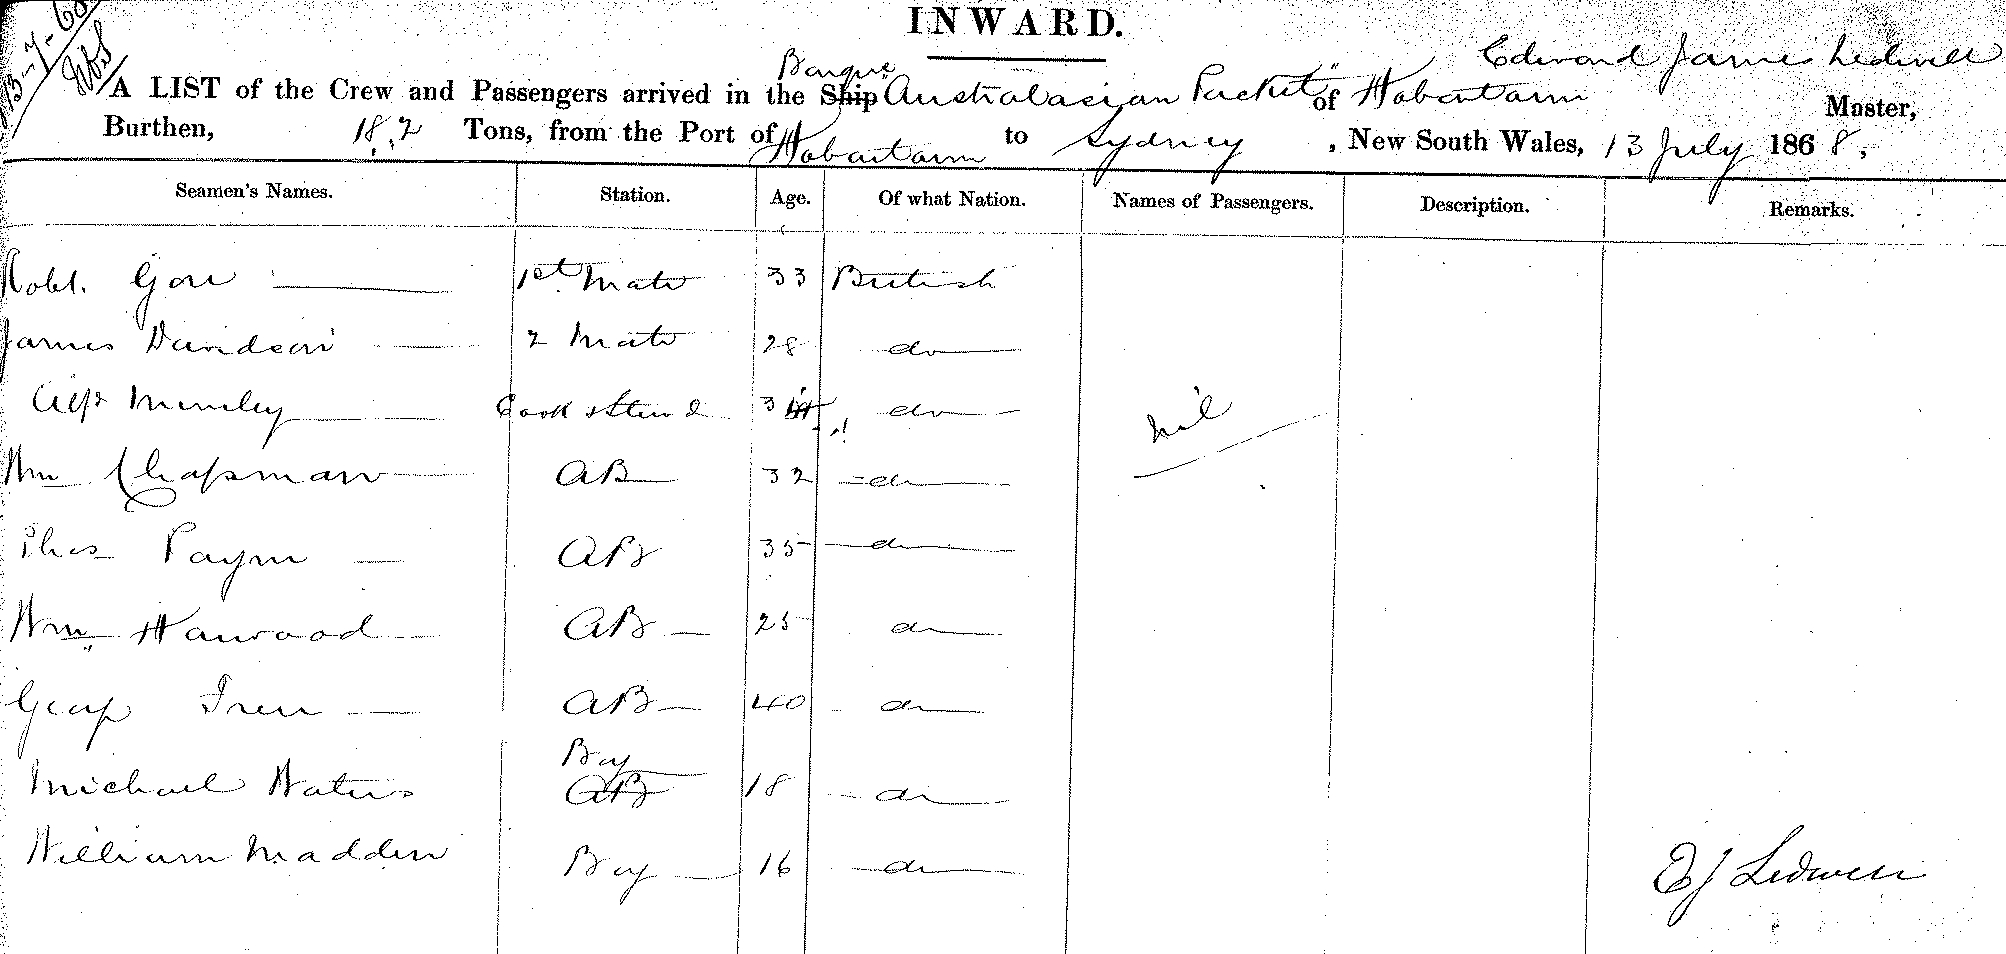 13-7-68
INWARD.
Edward James Ledwell
Barque
A LIST of the Crew and Passengers arrived in the Ship Australasian Packet" of Hobartown Master,
Burthen, 182 Tons, from the Port of Hobartown to Sydney, New South Wales, 13 July 1868,
Seamen's Names. Station. Age. Of what Nation. Names of Passengers. Description. Remarks.
Robt. Gore 1st Mate 33 British
James Davidson 2 Mate 28 do
Munley Cook & Stewd 3 do
nil
Wm Chapman AB 32 do
Thos Payne AB 35 do
Wm Harwood AB 25 do
George AB 40 do
Boy
Michael Waters AB 18 do
William Madden Boy 16 do
EJ Ledwell